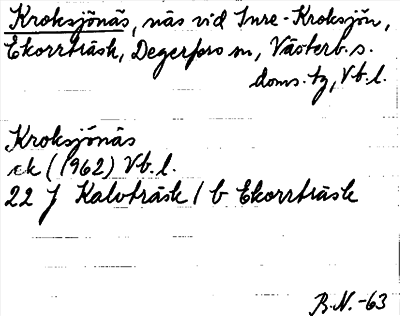 Kroksjönäs, näs vid Inre-Kroksjön,
Ekorrträsk, Degerfors sn, Västerb. s.
doms. tg, Vb. l.
Kroksjönäs
ek (1962) Vb. l.
22 J Kalvträsk / b Ekorrträsk
B.N. -63